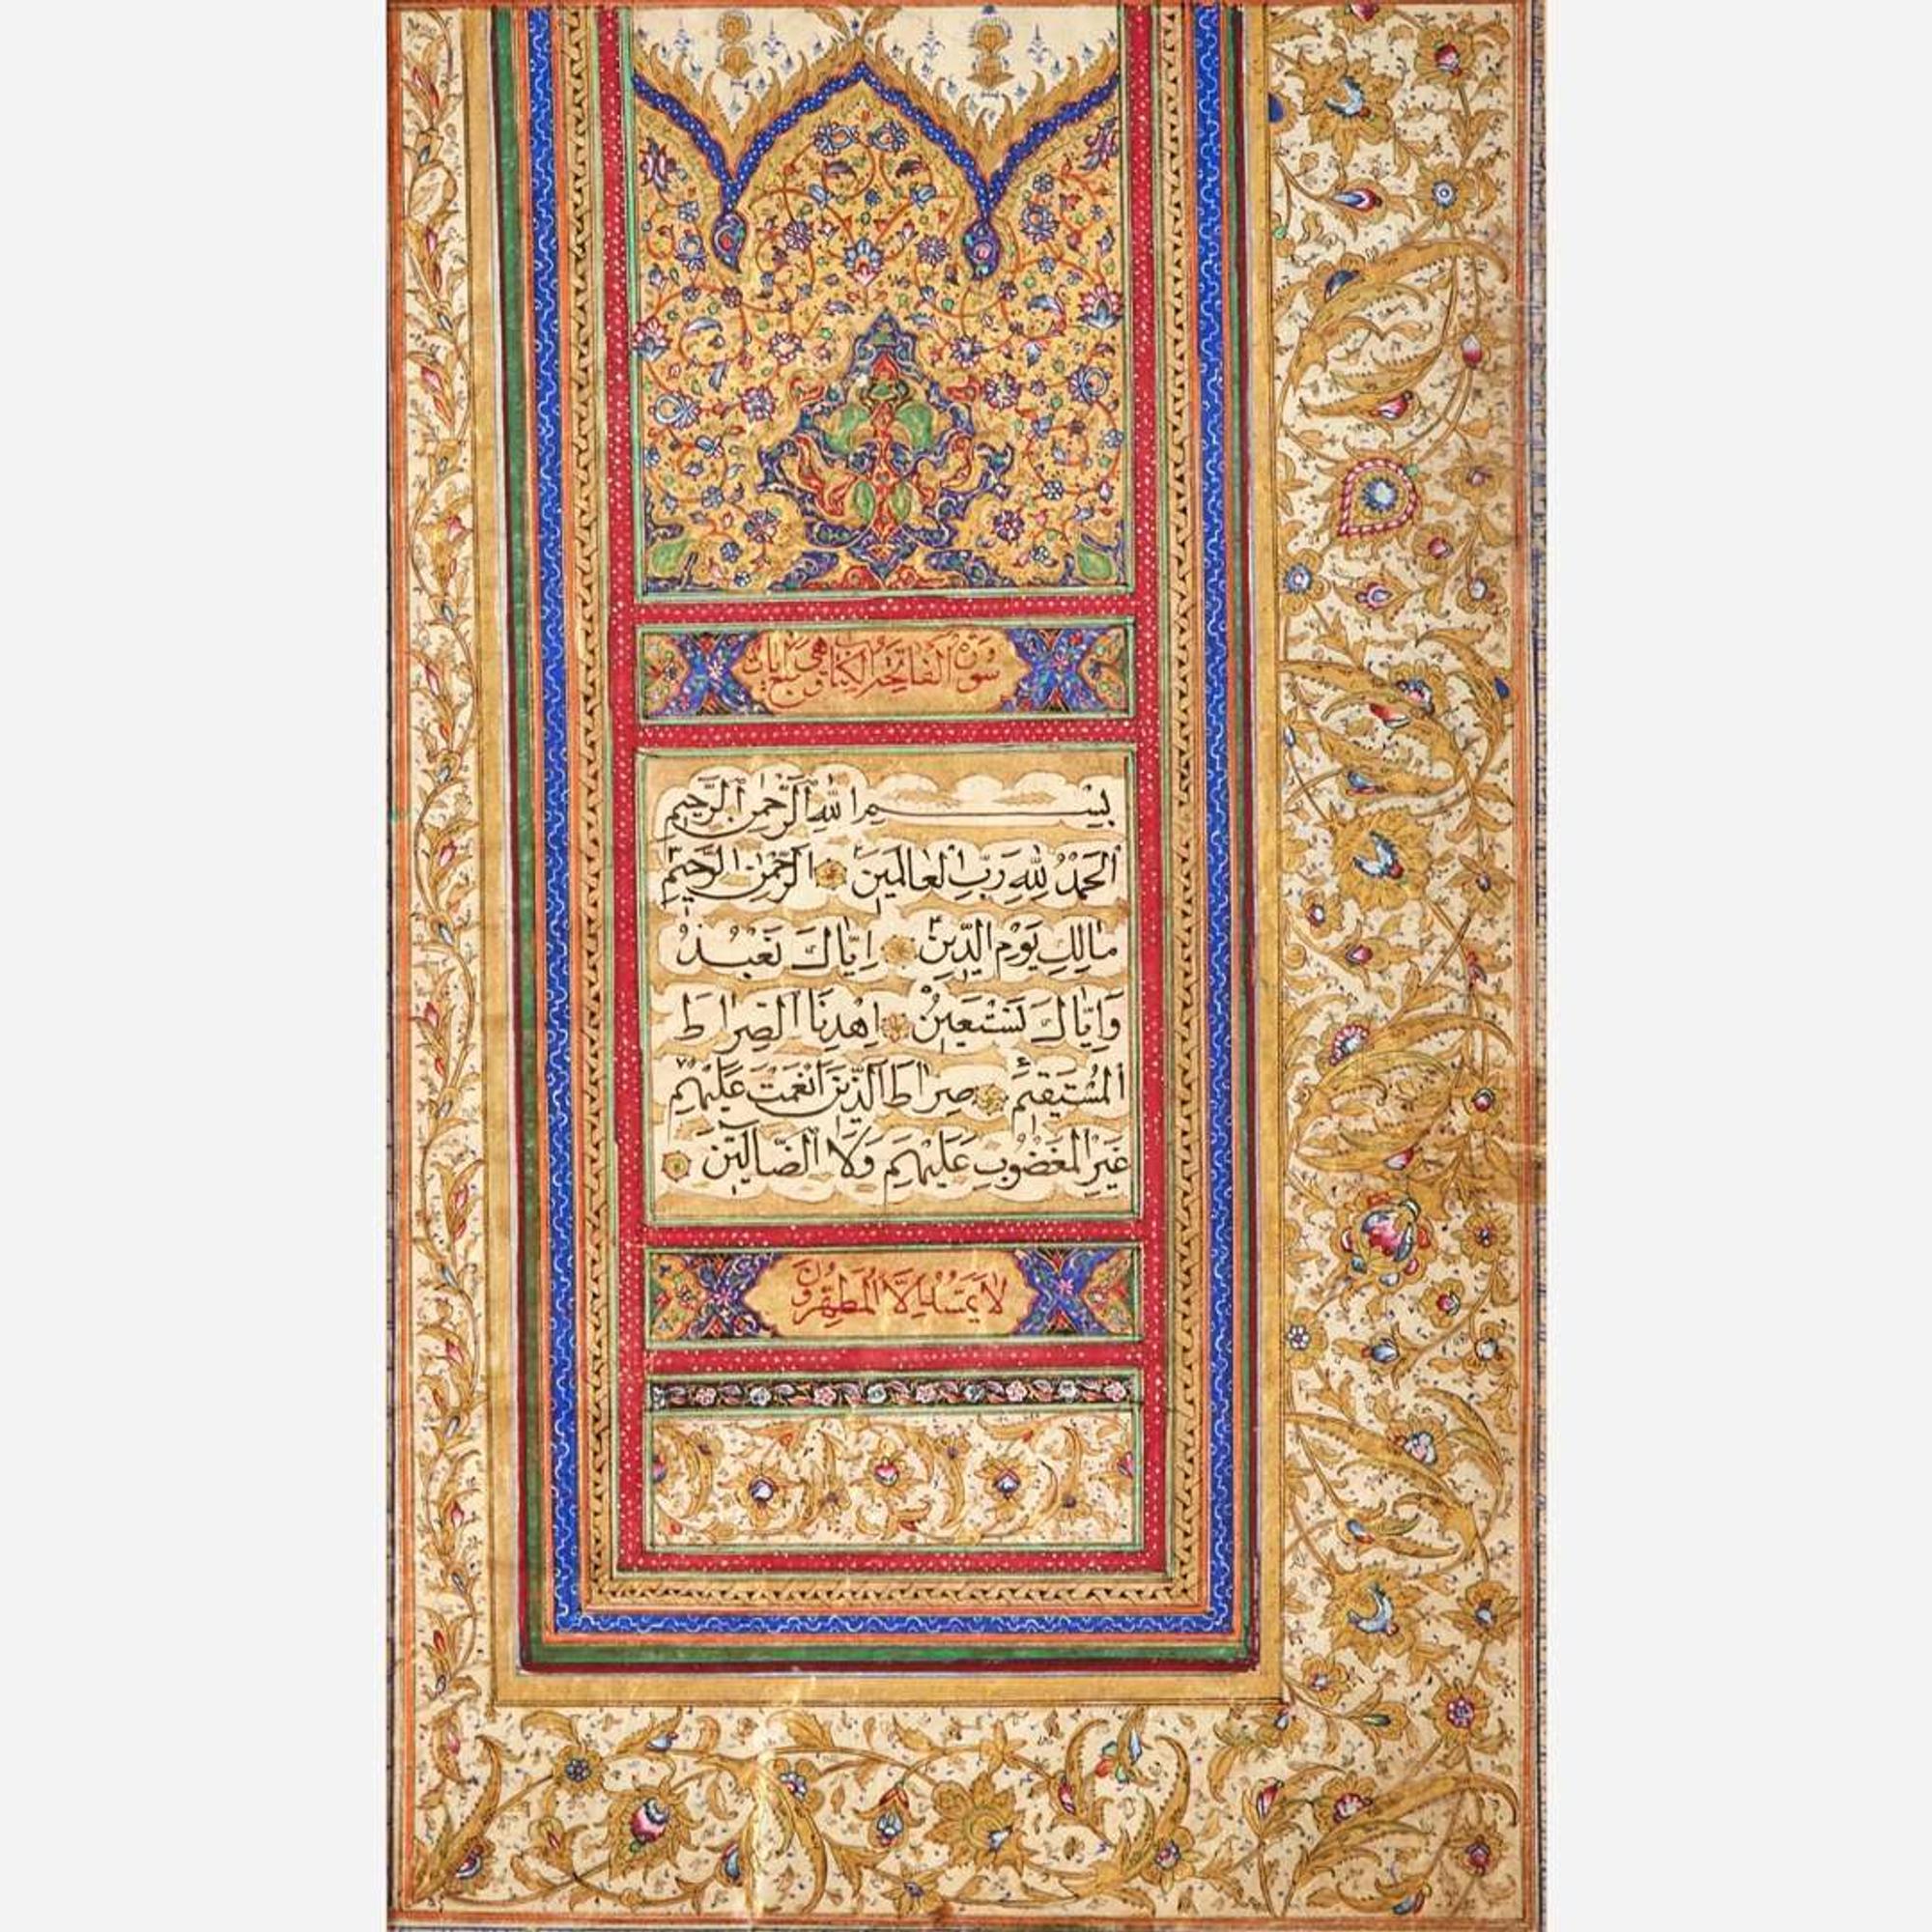 سورة الفاتحة الكتاب وهي سبع ايات
بِسْمِ اللّٰهِ الرَّحْمٰنِ الرَّحِيمِ
اَلْحَمْدُ لِلّٰهِ رَبِّ الْعٰالَمِينَ الرَّحْمٰنِ الرَّحِيمِ
مٰالِكِ يَوْمِ الدِّينِ اِيّٰاكَ نَعْبُدُ
وَاِيّٰاكَ نَسْتَعِينُ اِهْدِنَا الصِّرٰاطَ
الْمُسْتَقِيمَ صِرٰاطَ الَّذِينَ اَنْعَمْتَ عَلَيْهِمْ
غَيْرِ الْمَغْضُوبِ عَلَيْهِمْ وَلَا الضَّالِّينَ
لا يمسه الا المطهرون